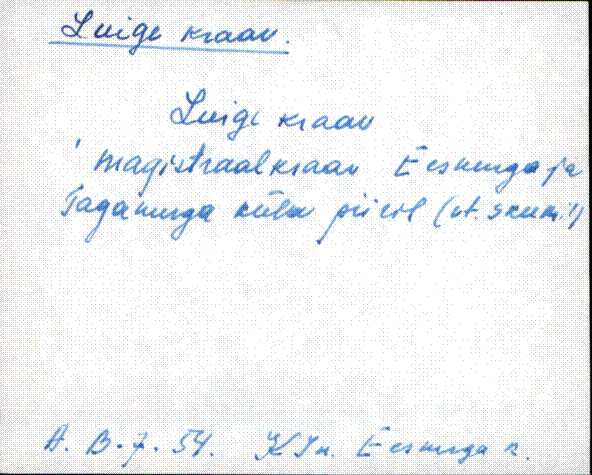 Luige kraav.
Luige kraav
' magistraalkraav Eesnurga ja
Taganurga küla piiril (vt. skeemi!)
A. B. 7. 54. KJn. Eesnurga k.